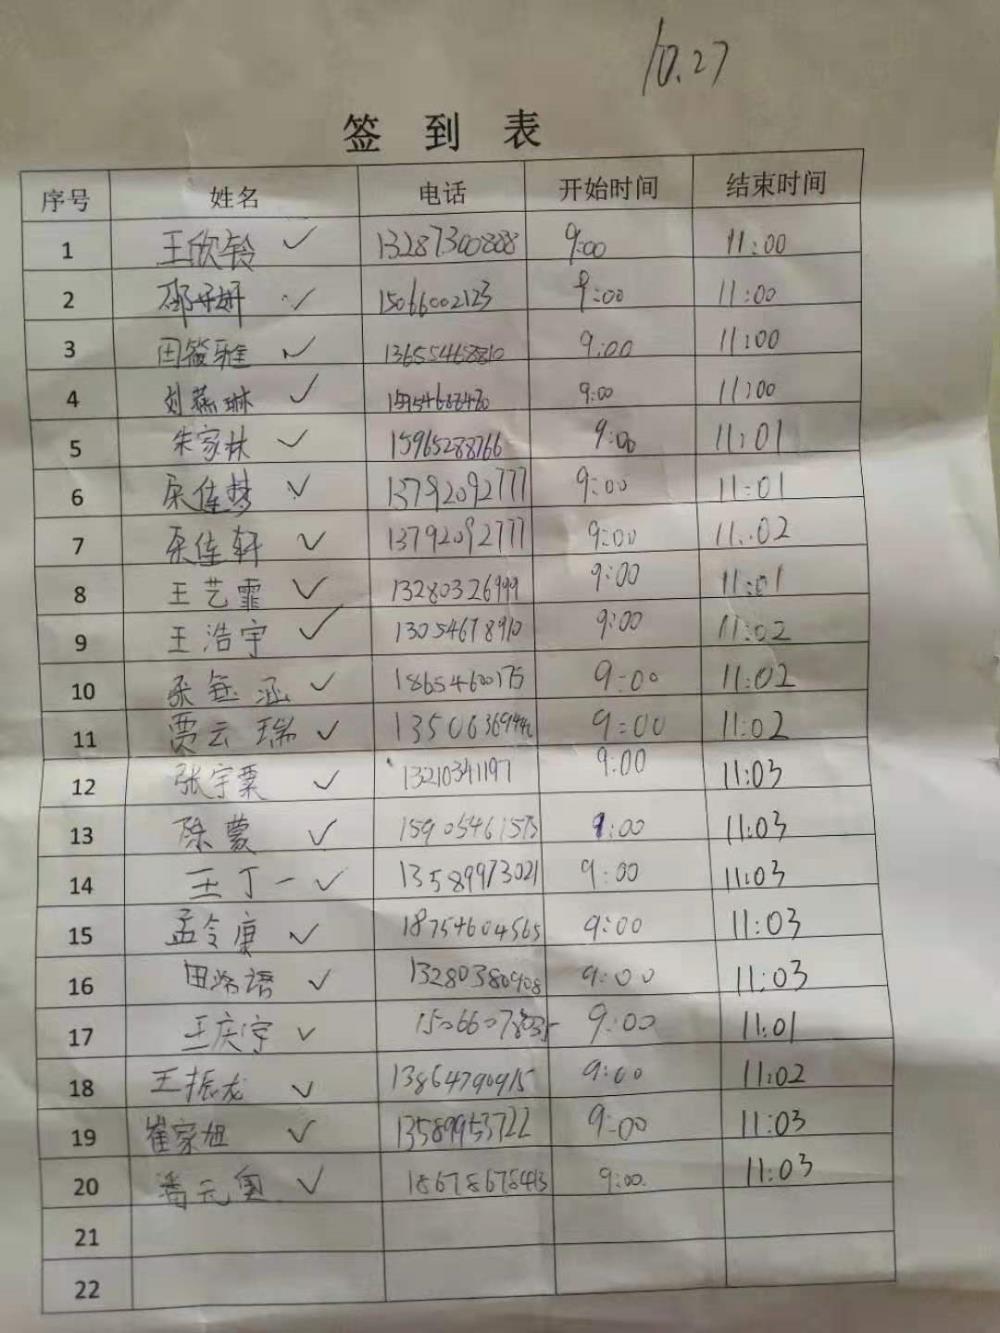 10.27
签 到 表
序号 姓名 电话 开始时间 结束时间
1 王欣铃 ✓ 13287300888 9:00 11:00
2 ✓ 15066002123 9:00 11:00
3 田筱雅 ✓ 13655468810 9:00 11:00
4 刘燕琳 ✓ 9:00 11:00
5 朱家林 ✓ 15965288766 9:00 11:01
6 ✓ 13792092777 9:00 11:01
7 ✓ 13792092777 9:00 11:02
8 王艺霏 ✓ 13280326999 9:00 11:01
9 王浩宇 ✓ 13054678910 9:00 11:02
10 张钰涵 ✓ 18654600175 9:00 11:02
11 贾云瑞 ✓ 9:00 11:02
12 张宇票 ✓ 13210341197 9:00 11:03
13 陈蒙 ✓ 15905461573 9:00 11:03
14 王丁一 ✓ 13589973021 9:00 11:03
15 孟令康 ✓ 18754604565 9:00 11:03
16 ✓ 13280380908 9:00 11:03
17 王庆宇 ✓ 15066078035 9:00 11:01
18 王振龙 ✓ 13864790915 9:00 11:02
19 崔家旭 ✓ 13589953722 9:00 11:03
20 ✓ 18678678413 9:00 11:03
21
22